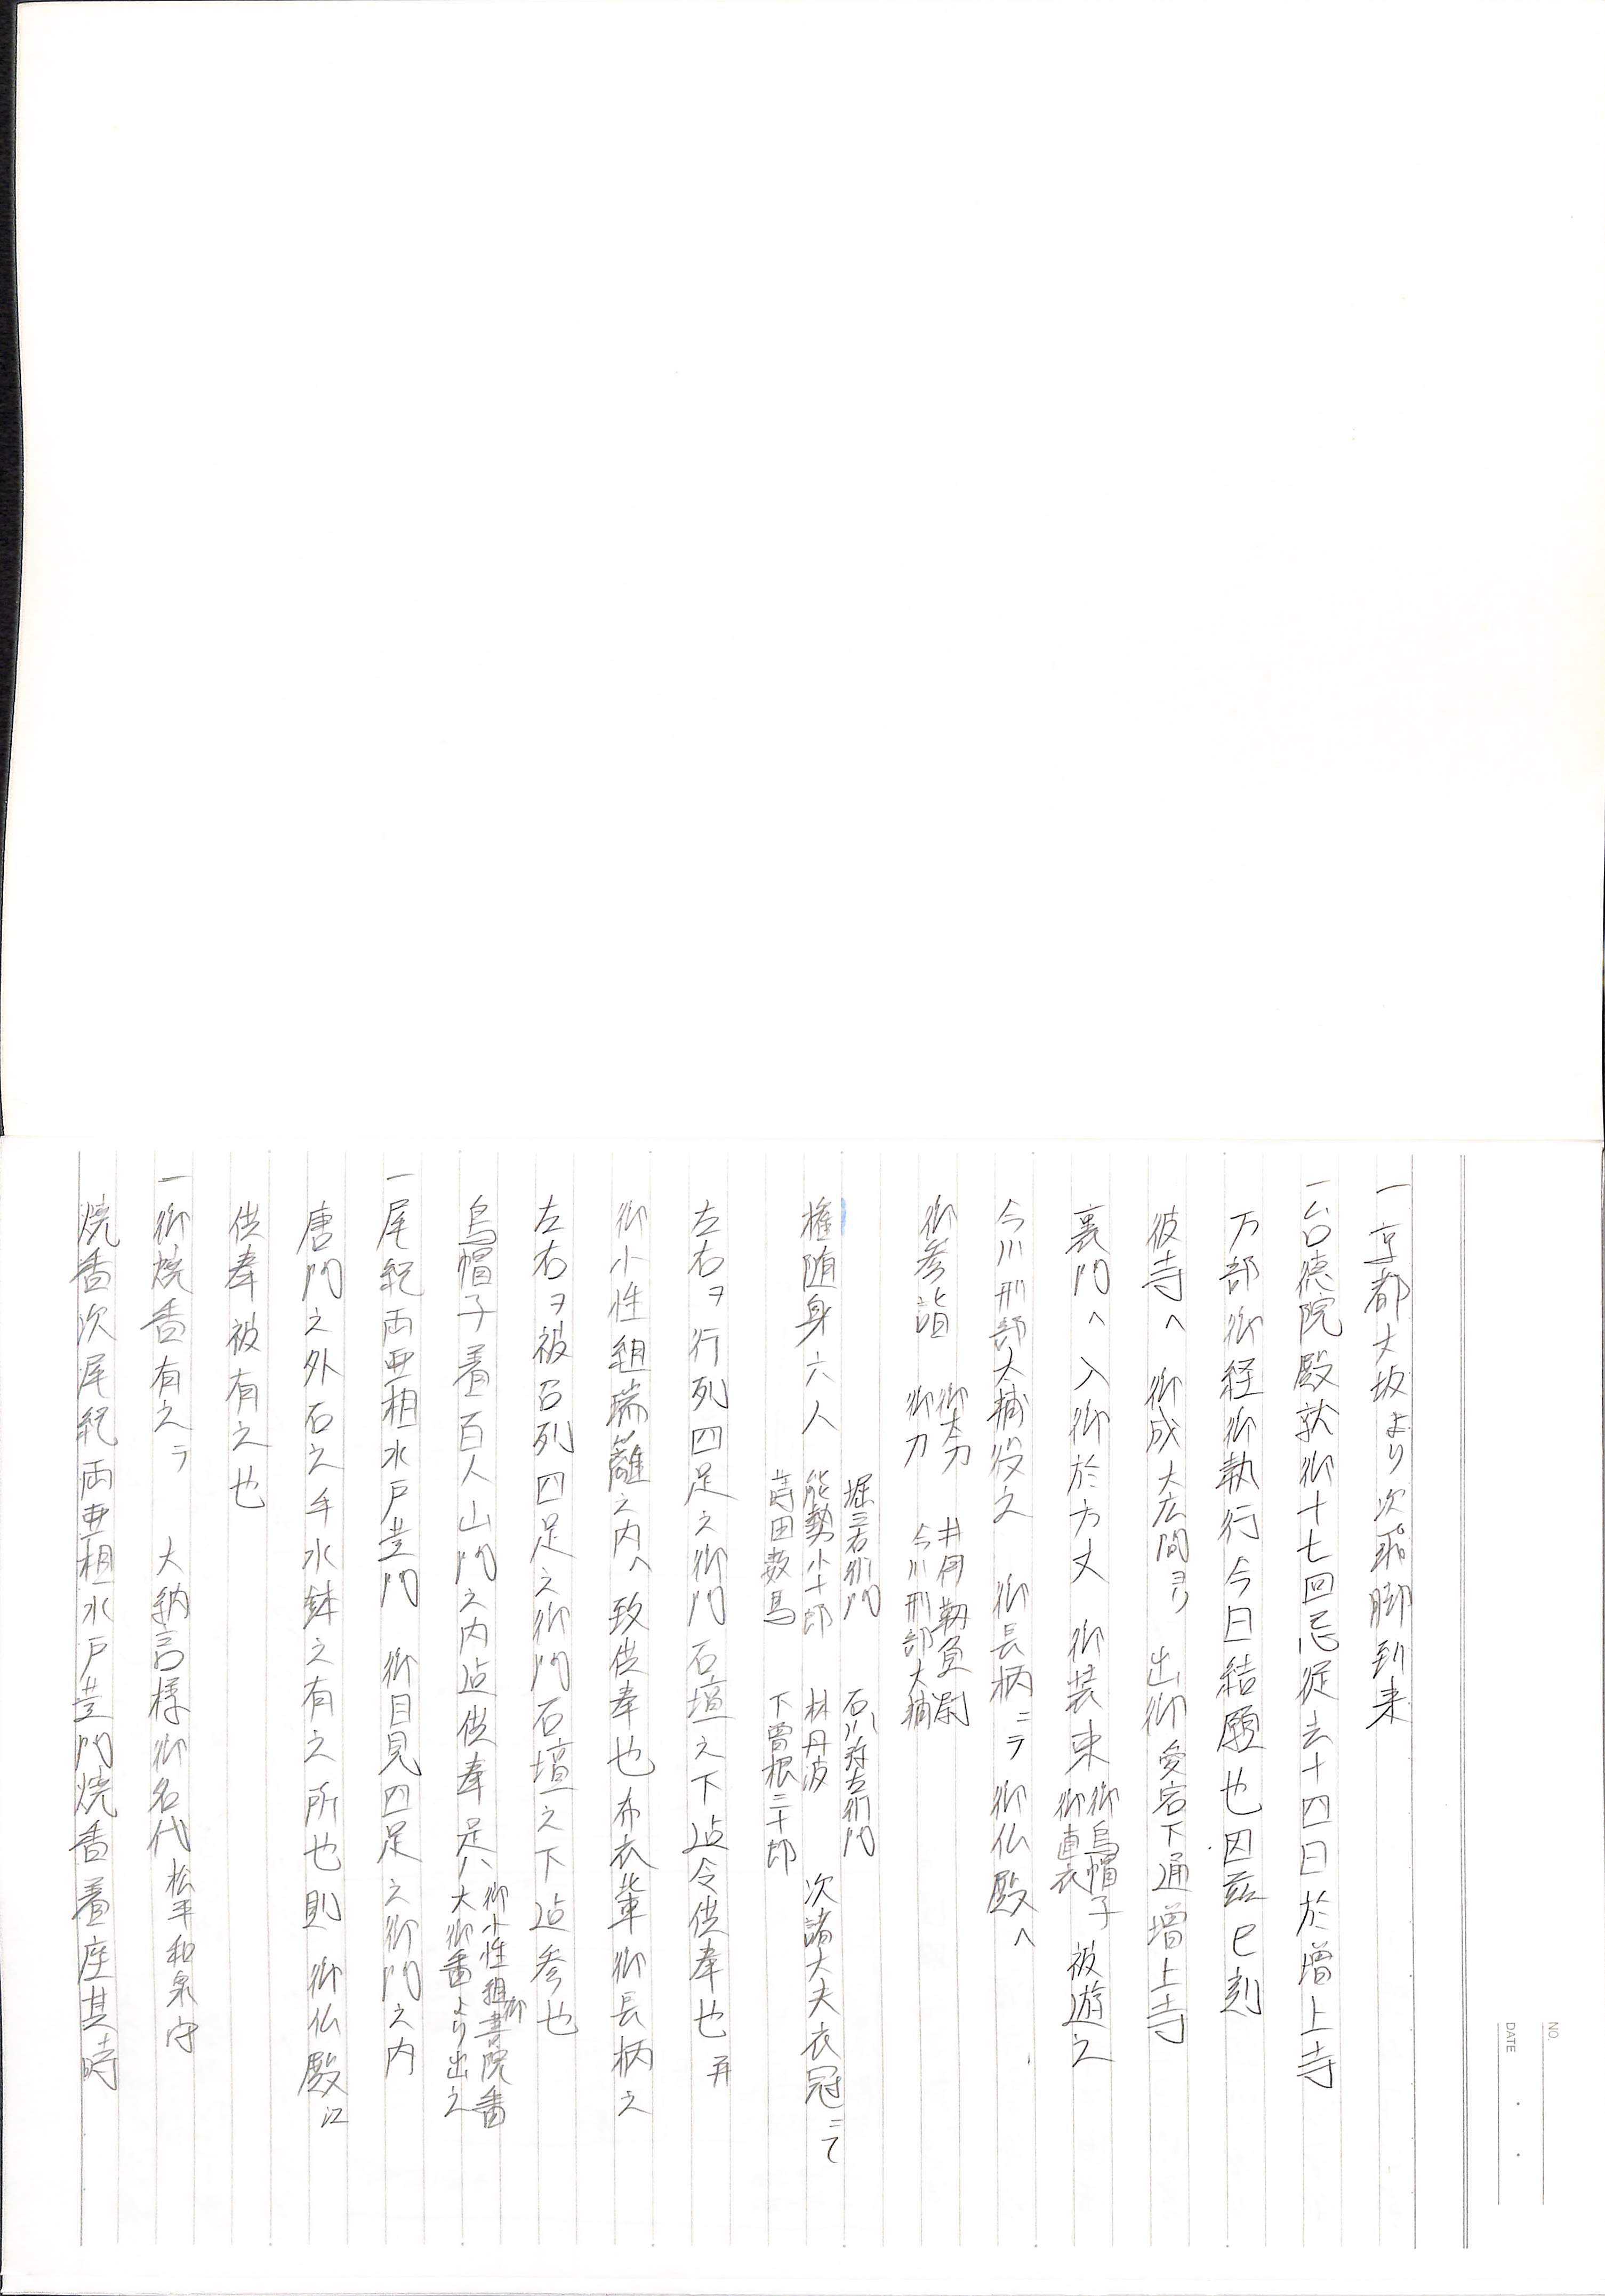 一京都大坂より次飛脚到来
一台徳院殿就御十七回忌従去十四日於増上寺
万部御経御執行今日結願也因茲巳刻
彼寺へ 御成大広間ヨリ 出御愛宕下通増上寺
裏門へ入御於方丈 御装束 御烏帽子 御直衣 被遊之
今川刑部大輔役之 御長柄ニテ御仏殿へ
御参詣 御太刀 井伊靱負尉
御刀 今川刑部大輔
権随身六人 堀三右衛門 石川弥左衛門
能勢小十郎 林丹波 次諸大夫衣冠ニて
蒔田数馬 下曽根三十郎
左右ヲ行列四足之御門石壇之下迠令供奉也 再
御小性組瑞籬之内へ致供奉也布衣輩御長柄之
左右ヲ被召列四足之御門石壇之下迠参也
烏帽子着百人山門之内迠供奉 是ハ御小性組御書院番
大御番より出之
一尾紀両亜相水戸黄門 御目見四足之御門之内
唐門之外石之手水鉢之有之所也則 御仏殿江
供奉被有之也
一御焼香有之テ 大納言様御名代松平和泉守
焼香次尾紀両亜相水戸黄門焼香着座其時
NO.
DATE ・ ・